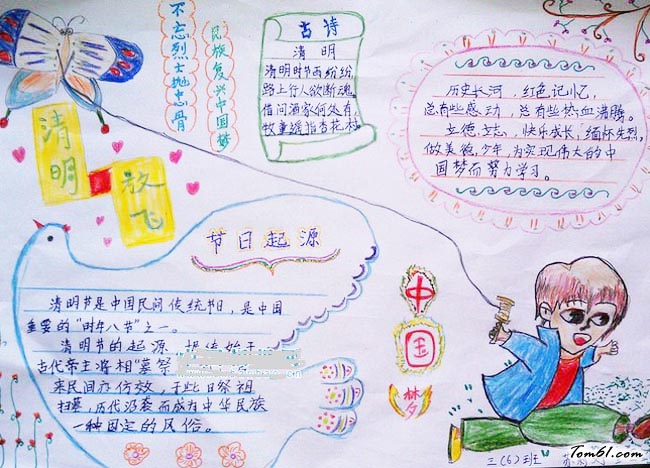 不忘烈士抛忠骨
民族复兴中国梦
古诗
清明
清明时节雨纷纷,
路上行人欲断魂。
借问酒家何处有,
牧童遥指杏花村。
历史长河,红色记忆,
总有些感动,总有些热血沸腾。
立德、立志,快乐成长,缅怀先烈,
做美德少年,为实现伟大的中
国梦而努力学习。
清明
放飞
节日起源
清明节是中国民间传统节日,是中国
重要的"时年八节"之一。
清明节的起源,据传始于
古代帝王将相"墓祭
来民间亦仿效,于此日祭祖
扫墓,历代沿袭而成为中华民族
一种固定的风俗。
中
国
梦
三(6)班
Tom61.com